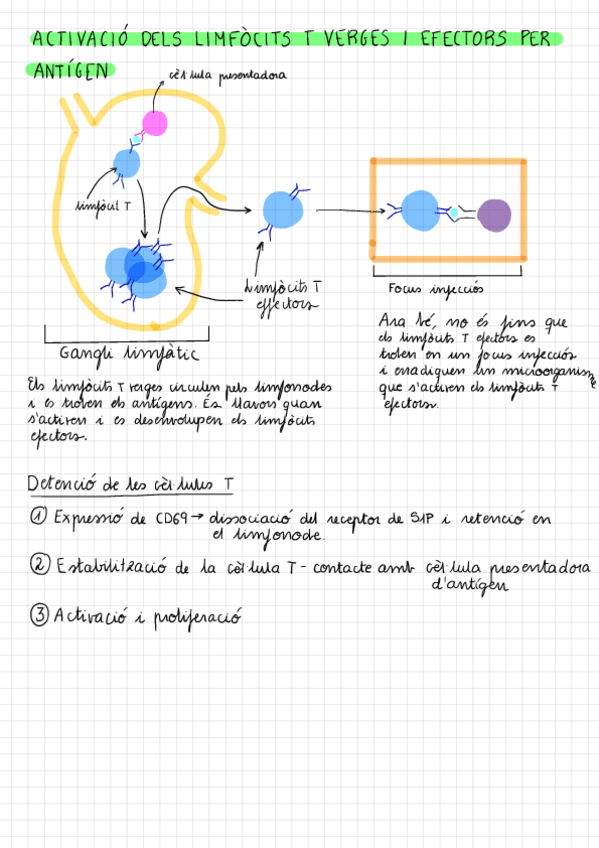 ACTIVACIÓ DELS LIMFÒCITS T VERGES I EFECTORS PER
ANTÍGEN
cèl·lula presentadora
limfòcit T
Limfòcits T
effectors
Gangli limfàtic
Els limfòcits T verges circulen pels limfonodes
i es troven els antígens. És llavors quan
s'activen i es desenvolupen els limfòcits
efectors.
Focus infecciós
Ara bé, no és fins que
els limfòcits T efectors es
troben en un focus infecciós
i erradiquen un microorganisme
que s'activen els limfòcits T
efectors.
Detenció de les cèl·lules T
① Expressió de CD69 → dissociació del receptor de S1P i retenció en
el limfonode.
② Estabilització de la cèl·lula T - contacte amb cèl·lula presentadora
d'antígen
③ Activació i proliferació